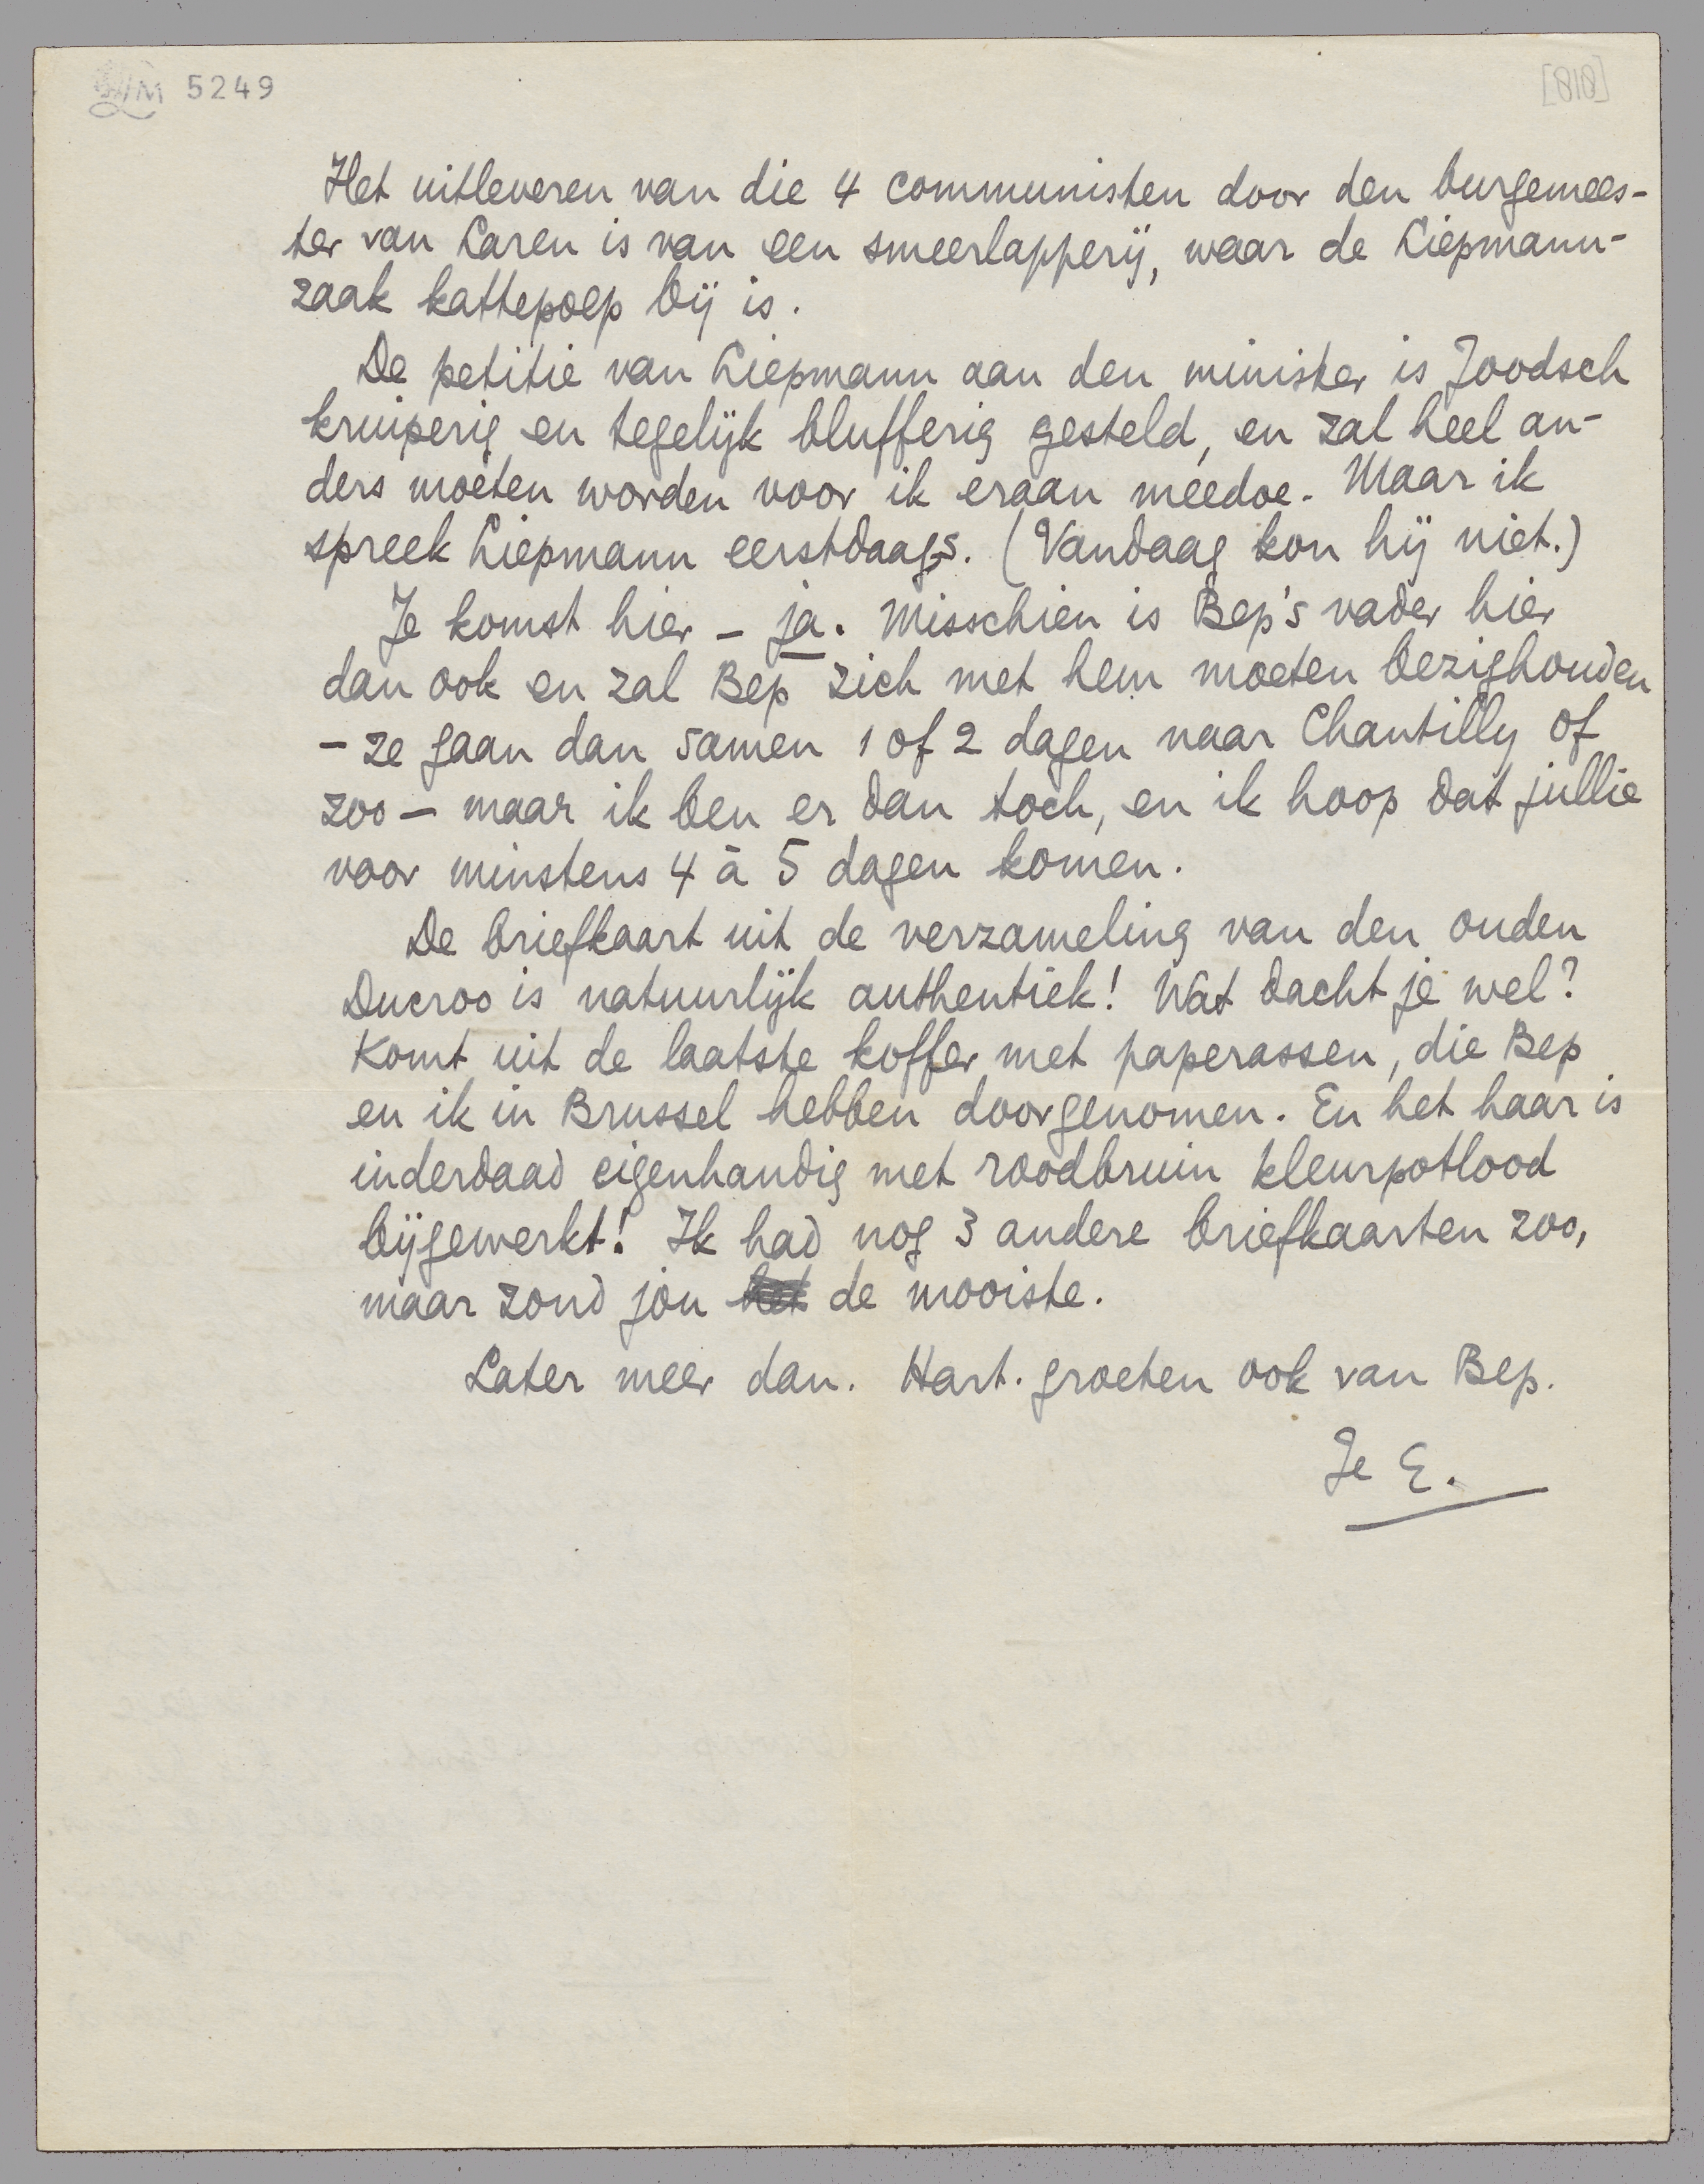 LM 5249
[810]
Het uitleveren van die 4 communisten door den burgemees-
ter van Laren is van een smeerlapperij, waar de Liepmann-
zaak kattepoep bij is.
De petitie van Liepmann aan den minister is Joodsch
kruiperig en tegelijk blufferig gesteld, en zal heel an-
ders moeten worden voor ik eraan meedoe. Maar ik
spreek Liepmann eerstdaags. (Vandaag kon hij niet.)
Je komst hier – ja. Misschien is Bep's vader hier
dan ook en zal Bep zich met hem moeten bezighouden
– ze gaan dan samen 1 of 2 dagen naar Chantilly of
zoo – maar ik ben er dan toch, en ik hoop dat jullie
voor minstens 4 à 5 dagen komen.
De briefkaart uit de verzameling van den ouden
Ducroo is natuurlijk authentiek! Wat dacht je wel?
Komt uit de laatste koffer met paperassen, die Bep
en ik in Brussel hebben doorgenomen. En het haar is
inderdaad eigenhandig met roodbruin kleurpotlood
bijgewerkt! Ik had nog 3 andere briefkaarten zoo,
maar zond jou het de mooiste.
Later meer dan. Hart. groeten ook van Bep.
Je E.